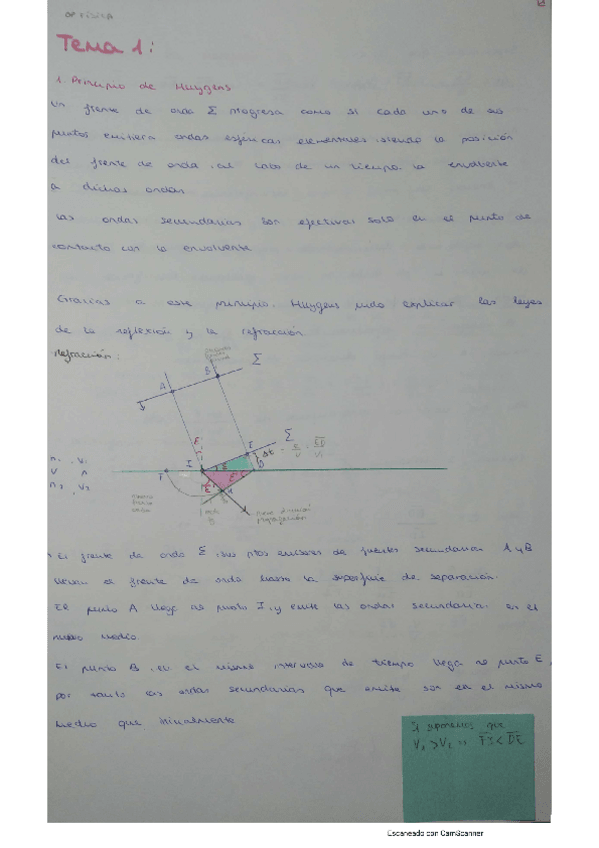 Tema 1:
1. Principio de Huygens
Un frente de onda Σ progresa como si cada uno de sus
puntos emitiera ondas esfericas elementales siendo la posición
del frente de onda, al cabo de un tiempo, la envolvente
a dichas ondas
Las ondas secundarias son efectivas solo en el punto de
contacto con la envolvente
Gracias a este principio, Huygens pudo explicar las leyes
de la reflexión y la refracción.
Refracción:
A B Σ
Σ
I E Δt
T D
n₁ V₁
n₂ V₂
El frente de onda Σ, sus ptos emisores de fuentes secundarias A y B
llevan el frente de onda hasta la superficie de separación.
El punto A llega al punto I, y emite las ondas secundarias en el
nuevo medio.
El punto B, en el mismo intervalo de tiempo llega al punto E,
por tanto las ondas secundarias que emite son en el mismo
medio que inicialmente
Si suponemos que
V₁ > V₂
Escaneado con CamScanner